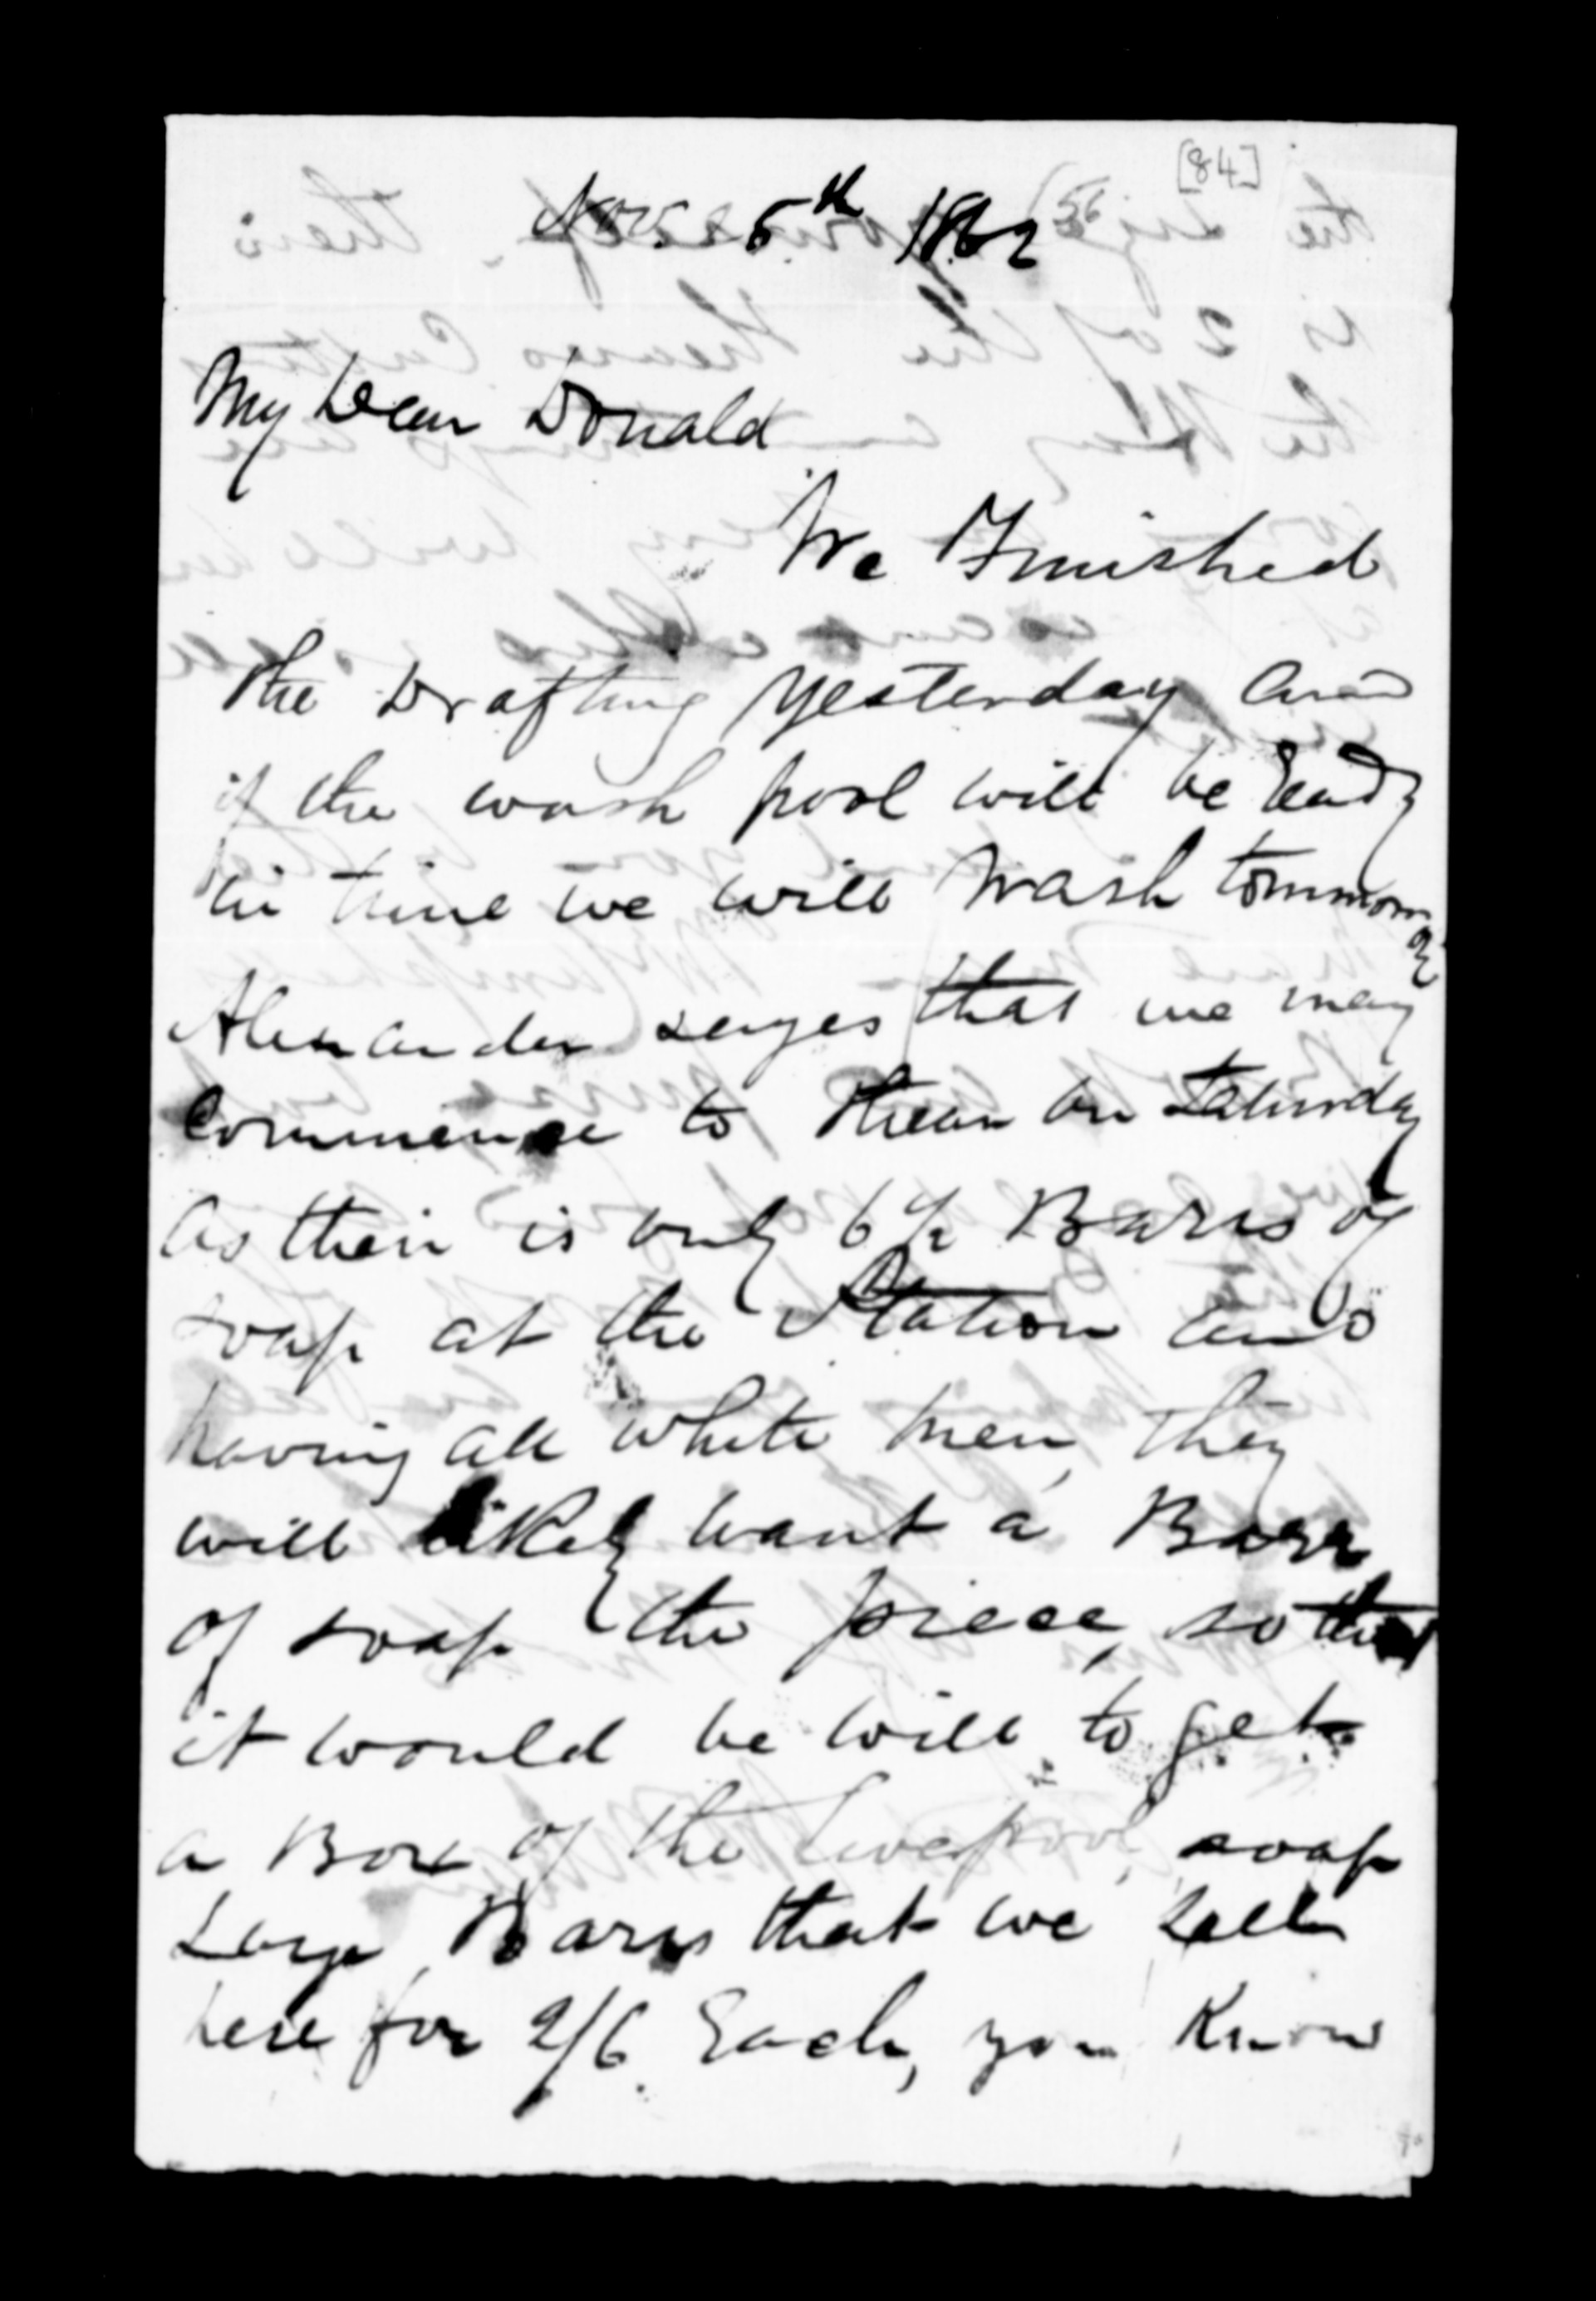 [84]
Nov. 5th 1862
My Dear Donald
We Finished
the Drafting Yesterday and
if the wash pool will be Ready
in time we will Wash tommorrow
Alexander sayes that we may
Commence to Shear on Saturday
As their is only 6½ Barrs of
soap at the Station and
having all white men, they
will likely want a Barr
of soap the piece, so that
it would be will to get
a Box of the Liverpool, soap
Large Barrs that we sell
here for 2/6 Each, you Know